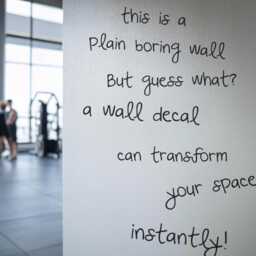 this is a
plain boring wall
But guess what?
a wall decal
can transform
your space
instantly!